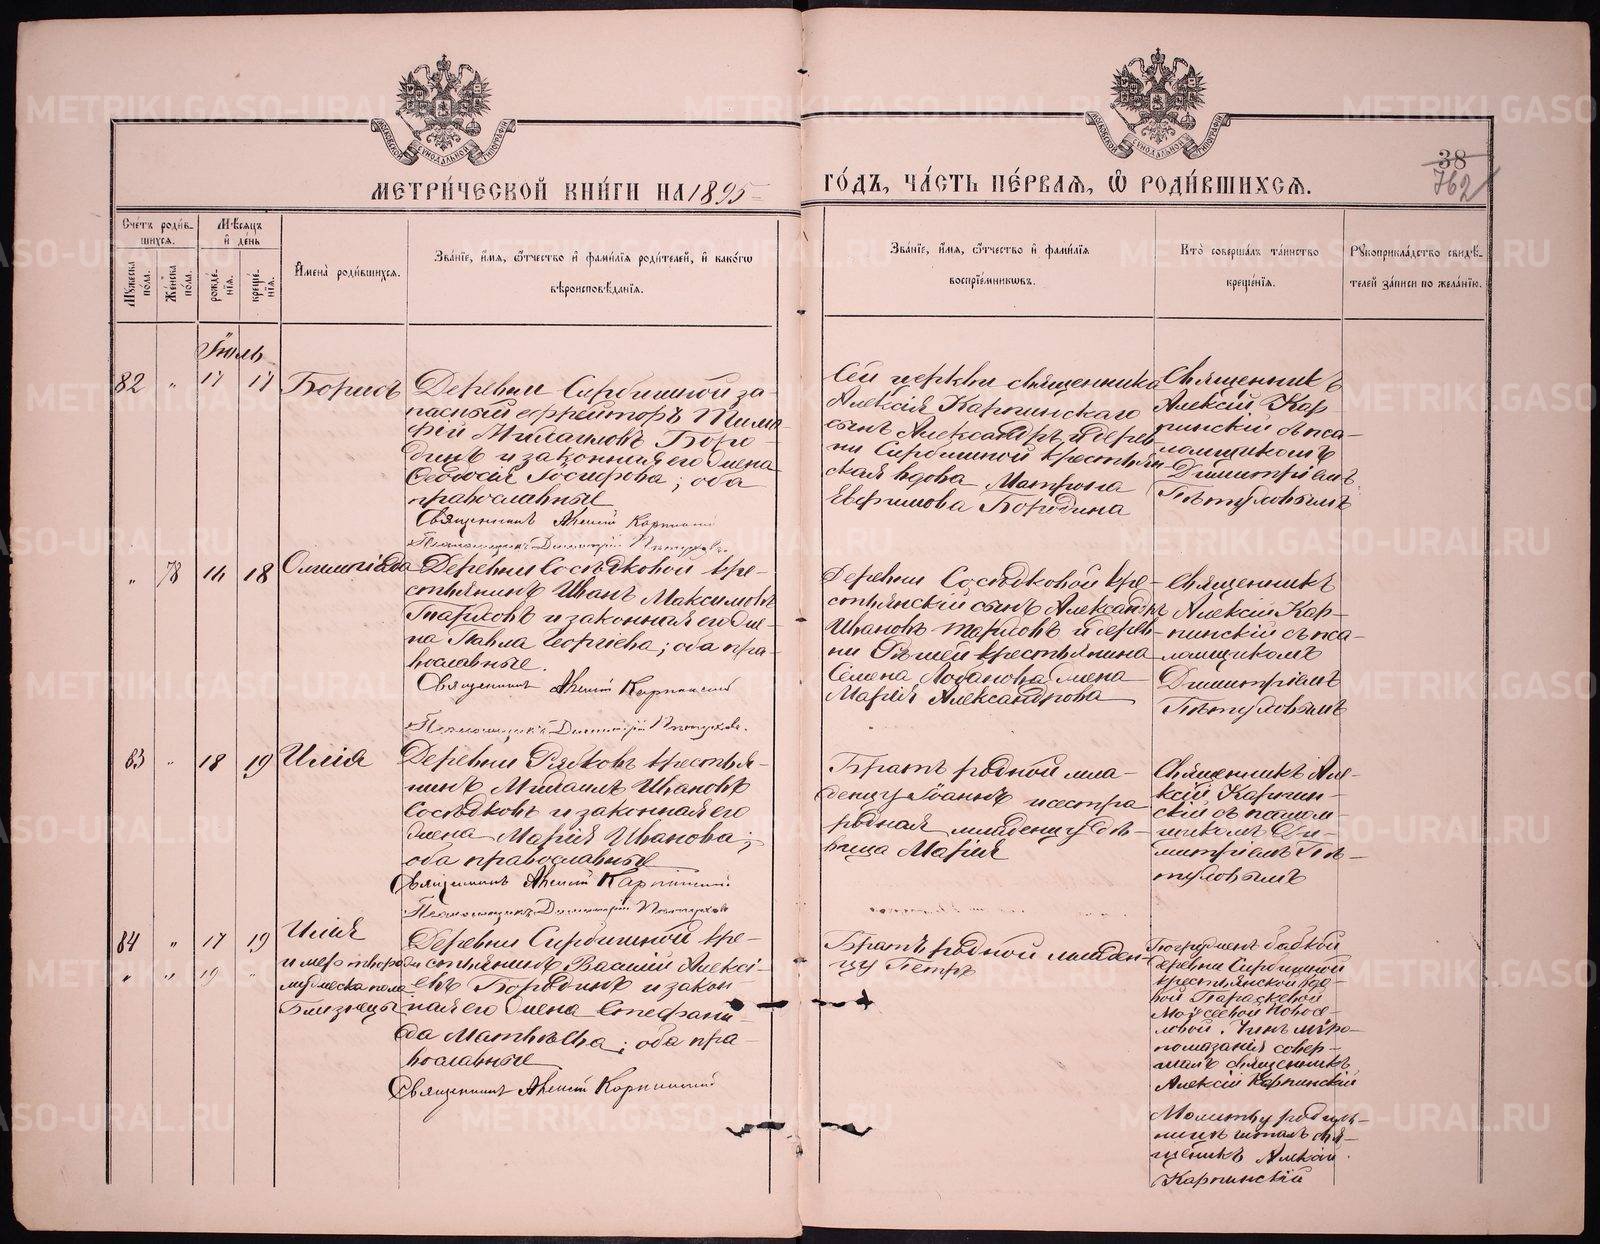 МЕТРИ́ЧЕСКОЙ КНИ́ГИ НА 1895
ГО́ДЪ, ЧА́СТЬ ПЕ́РВАѦ, Ѽ РОДИ́ВШИХСѦ.
38
762
Сче́тъ роди́в-
шихсѧ.
Мѣ́сѧцъ
и҆ день
Мꙋжеска по́ла.
Же́нска по́ла.
рожде́-
нїѧ.
креще́-
нїѧ.
И҆мена̀ роди́вшихсѧ.
Зва́нїе, и҆́мѧ, ѻ҆́тчество и҆ фами́лїѧ роди́телей, и҆ како́гѡ
вѣроисповѣ́данїѧ.
Зва́нїе, и҆́мѧ, ѻ҆́тчество и҆ фами́лїѧ
воспрїе́мникѡвъ.
Кто̀ соверша́лъ та́инство
креще́нїѧ.
Рꙋкоприкла́дство свидѣ́-
телей за́писи по жела́нїю.
Іюль
82 " 17 17 Борисъ
Деревни Сербишиной за-
пасный ефрейторъ Тимо-
фій Михаиловъ Боро-
динъ и законная его жена
Ѳеодосія Іосифова; оба
православные
Священникъ Алексій Карпинскій
Псаломщикъ Димитрій Пѣтуховъ.
Сей церкви священника
Алексія Карпинскаго
сынъ Александръ и дерев-
ни Сербишиной крестьян-
ская вдова Матрона
Евфимова Бородина
Священникъ
Алексій Кар-
пинскій съ пса-
ломщикомъ
Димитріемъ
Пѣтуховымъ
" 78 14 18 Олимпіада
Деревни Сосѣдковой кре-
стьянинъ Иванъ Максимовъ
Тарасовъ и законная его же-
на Павла Георгіева; оба пра-
вославные.
Священникъ Алексій Карпинскій
Псаломщикъ Димитрій Пѣтуховъ.
Деревни Сосѣдковой кре-
стьянскій сынъ Александръ
Ивановъ Тарасовъ и дерев-
ни крестьянина
Семена Лобанова жена
Марія Александрова
Священникъ
Алексій Кар-
пинскій съ пса-
ломщикомъ
Димитріемъ
Пѣтуховымъ
83 " 18 19 Илія
Деревни Рябковъ крестья-
нинъ Михаилъ Ивановъ
Сосѣдковъ и законная его
жена Марія Иванова;
оба православные
Священникъ Алексій Карпинскій
Псаломщикъ Димитрій Пѣтуховъ
Братъ родной мла-
денцу Іоаннъ и сестра
родная младенцу дѣ-
вица Марія
Священникъ Але-
ксій Карпин-
скій съ псалом-
щикомъ Ди-
митріемъ Пѣ-
туховымъ
84 " 17 19 Илія
" " 19 " и мертворожден
мужеска пола
Близнецы
Деревни Сербишиной кре-
стьянинъ Василій Алексі-
евъ Бородинъ и закон-
ная его жена Стефани-
да Матѳіева; оба пра-
вославные
Священникъ Алексій Карпинскій
Братъ родной младен-
цу Петръ
Погруженъ бабкой
деревни Сербишиной
крестьянской вдо-
вой Параскевой
Моисеевой Новосе-
ловой. Чинъ мѵро-
помазанія совер-
шилъ священникъ
Алексій Карпинскій
Молитву родиль-
ницѣ читалъ свя-
щенникъ Алексій
Карпинскій
METRIKI.GASO-URAL.RU